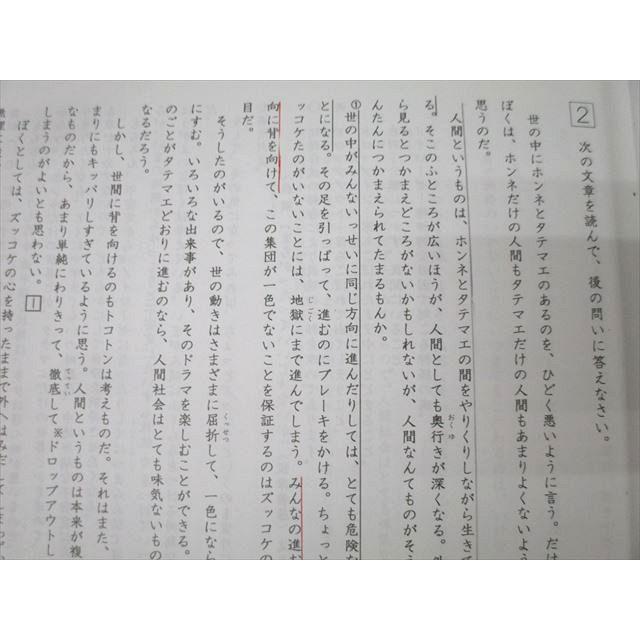 2 次の文章を読んで、後の問いに答えなさい。
世の中にホンネとタテマエのあるのを、ひどく悪いように言う。だけ
ぼくは、ホンネだけの人間もタテマエだけの人間もあまりよくないよう
思うのだ。
人間というものは、ホンネとタテマエの間をやりくりしながら生きて
る。そこのふところが広いほうが、人間としても奥行きが深くなる。外
おくゆ
ら見るとつかまえどころがないかもしれないが、人間なんてものがそう
んたんにつかまえられてたまるもんか。
①世の中がみんないっせいに同じ方向に進んだりしては、とても危険な
とになる。その足を引っぱって、進むのにブレーキをかける。ちょっと
ッコケたのがいないことには、地獄にまで進んでしまう。みんなの進む
じごく
向に背を向けて、この集団が一色でないことを保証するのはズッコケの
目だ。
そうしたのがいるので、世の動きはさまざまに屈折して、一色になら
くっせつ
にすむ。いろいろな出来事があり、そのドラマを楽しむことができる。
のごとがタテマエどおりに進むのなら、人間社会はとても味気ないもの
なるだろう。
しかし、世間に背を向けるのもトコトンは考えものだ。それはまた、
まりにもキッパリしすぎているように思う。人間というものは本来が複
なものだから、あまり単純にわりきって、徹底して※ドロップアウトし
てってい
しまうのがよいとも思わない。 1
ぼくとしては、ズッコケの心を持ったままで外へはみだしてしまわず